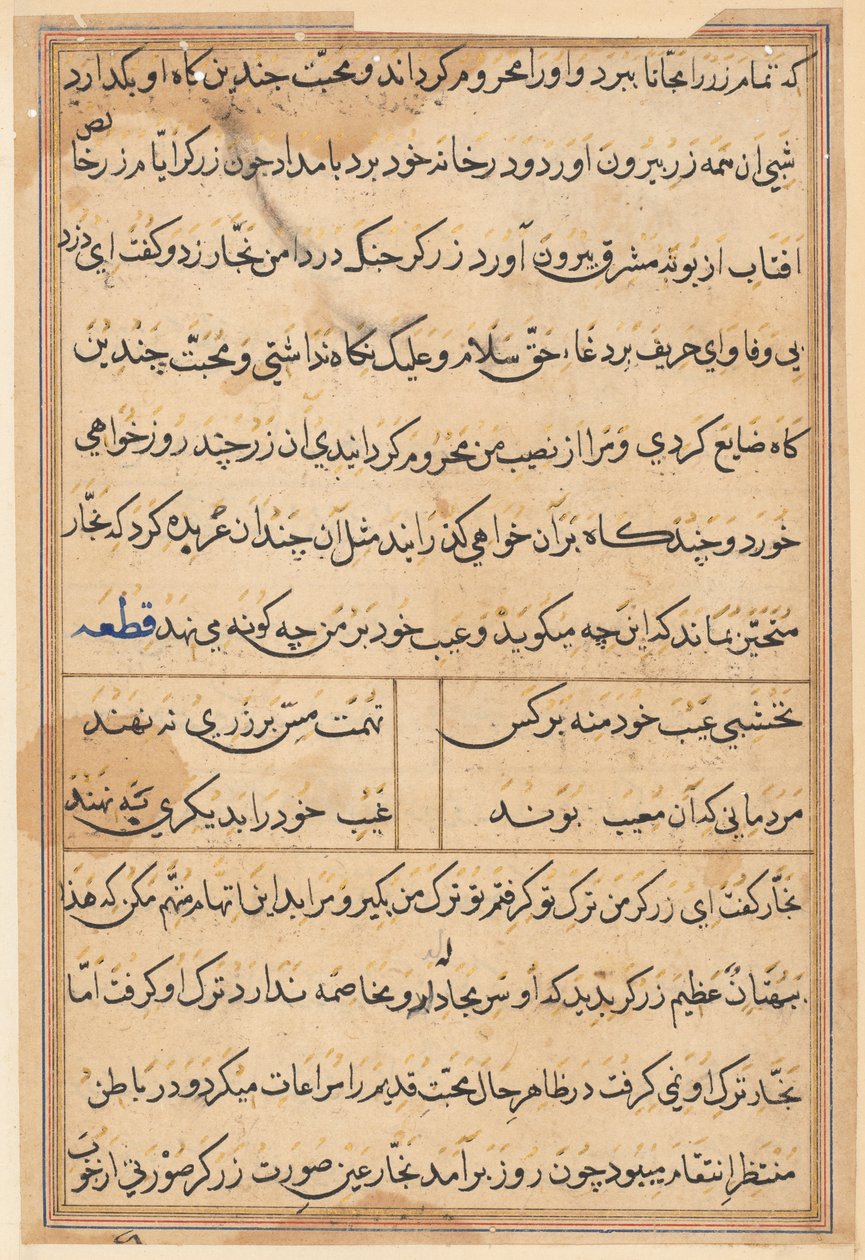 که تمام زر را مجّانا ببرد و او را محروم کرداند و محبّت جندین کاه او بکدارد
شبي ان همه زر بیرون اورد و در خانه خود برد بامداد جون زرکر ایّام زر خا لص
افتاب از بوته مشرق بیرون آورد زرکر جنک در دامن نجّار زد و کفت اي دزد
بي وفا و اي حریف بردغاء حقّ سلام و علیک نکاه نداشتي و محبّت چندین
کاه ضایع کردي و مرا از نصیب من محروم کردانیدي ان زر چند روز خواهي
خورد و چند کاه بر آن خواهي کذرانید مثل آن چندان عربده کرد که نجّار
متحیّر بماند که این چه میکوید و عیب خود بر من چه کونه مي نهد قطعه
نخشبي عیب خود منه بر کس
تهمت مسّ بر زري نه نهند
مردماني که آن معیب بوند
عیب خود را بدیکري نه نهند
نجّار کفت اي زرکر من ترک تو کرفتم تو ترک من بکیر و مرا بداین اتهام متهّم مکن که هذا
بهتانٌ عظیم زرکر بدید که او سر مجادله و مخاصمه ندارد ترک او کرفت امّا
نجّار ترک او نمي کرفت در ظاهر حال محبّت قدیم را مراعات میکرد و در باطن
منتظر انتقام میبود چون روز برآمد نجّار عین صورت زرکر صورتي از خوب